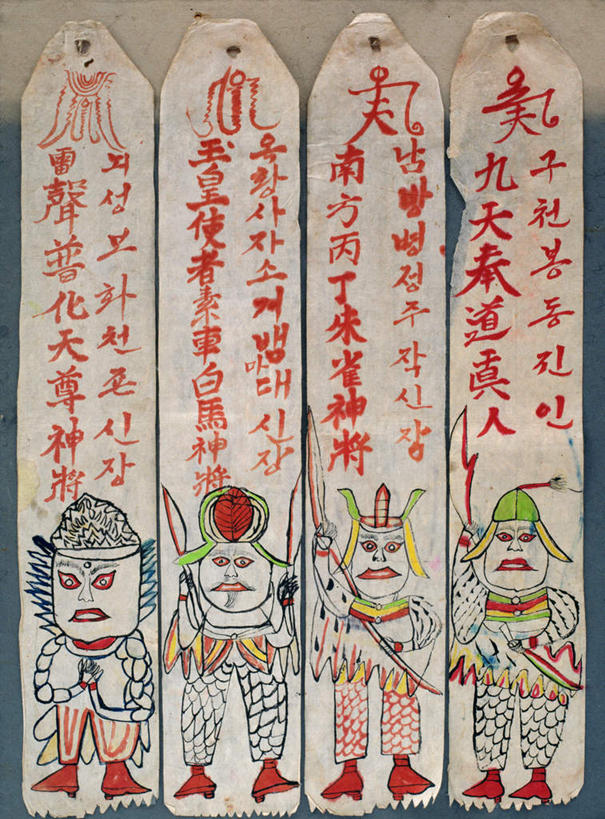 구천봉동진인
九天奉道眞人
남방병정주작신장
南方丙丁朱雀神將
옥황사자소거뱀마대신장
玉皇使者素車白馬神將
뇌성보화천존신장
雷聲普化天尊神將